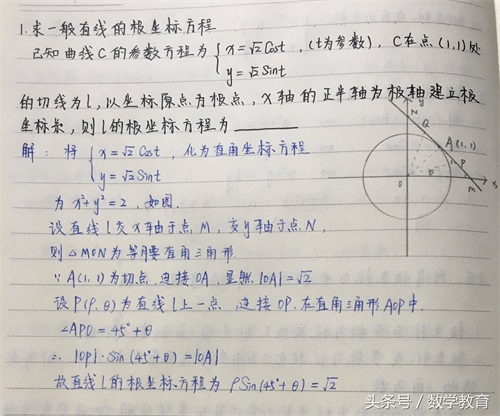 1.求一般直线的极坐标方程
已知曲线C的参数方程为 { x=√2Cost , (t为参数), C在点(1,1)处
y=√2Sint
的切线为l,以坐标原点为极点,x轴的正半轴为极轴建立极
坐标系,则l的极坐标方程为
解:将 { x=√2Cost , 化为直角坐标方程
y=√2Sint
为x²+y²=2,如图.
设直线l交x轴于点M,交y轴于点N,
则△MON为等腰直角三角形
∵A(1,1)为切点,连接OA,显然|OA|=√2
设P(ρ,θ)为直线l上一点,连接OP.在直角三角形AOP中.
∠APO=45°+θ
∴|OP|·Sin(45°+θ)=|OA|
故直线l的极坐标方程为 ρSin(45°+θ)=√2
y
N
Q
A(1,1)
P
O
M
x
头条号/数学教育